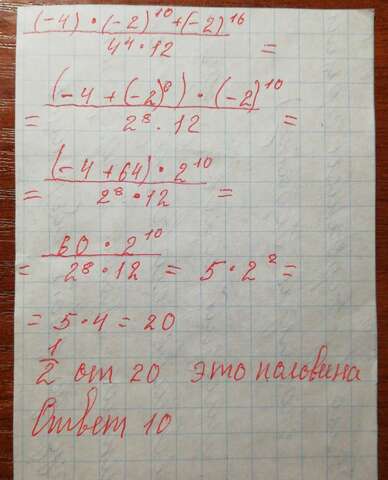 (-4) · (-2)^10 + (-2)^16 / 4^4 · 12 =
= (-4 + (-2)^6) · (-2)^10 / 2^8 · 12 =
= (-4 + 64) · 2^10 / 2^8 · 12 =
= 60 · 2^10 / 2^8 · 12 = 5 · 2^2 =
= 5 · 4 = 20
1/2 от 20 это половина
Ответ 10